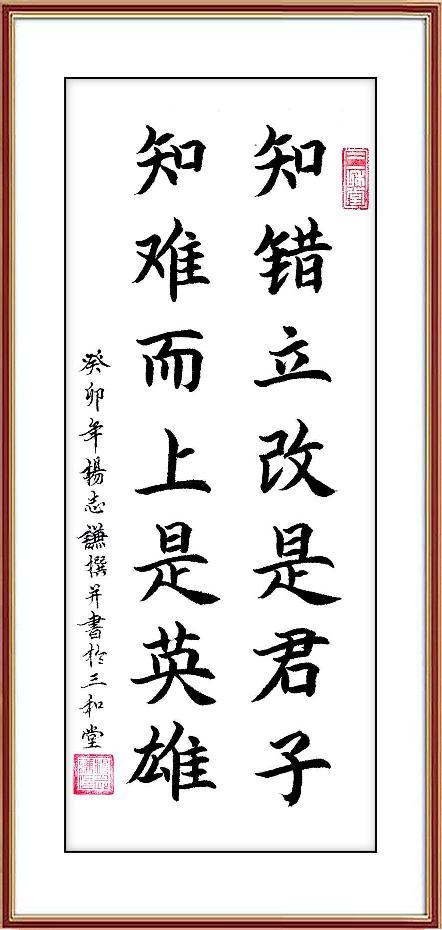 三和堂
知错立改是君子
知难而上是英雄
癸卯年楊志謙撰并書於三和堂